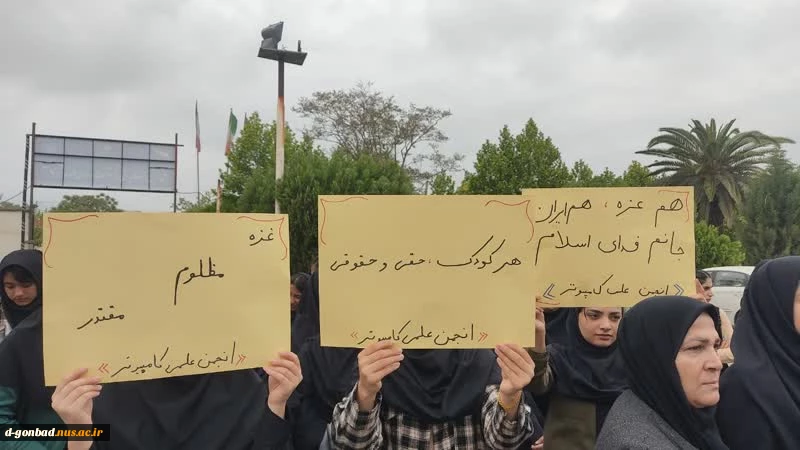 غزه
مظلوم
مقتدر
«انجمن علمی کامپیوتر»
هر کودک، حقی و حقوقی
«انجمن علمی کامپیوتر»
هم غزه، هم ایران
جانم فدای اسلام
«انجمن علمی کامپیوتر»
d-gonbad.nus.ac.ir